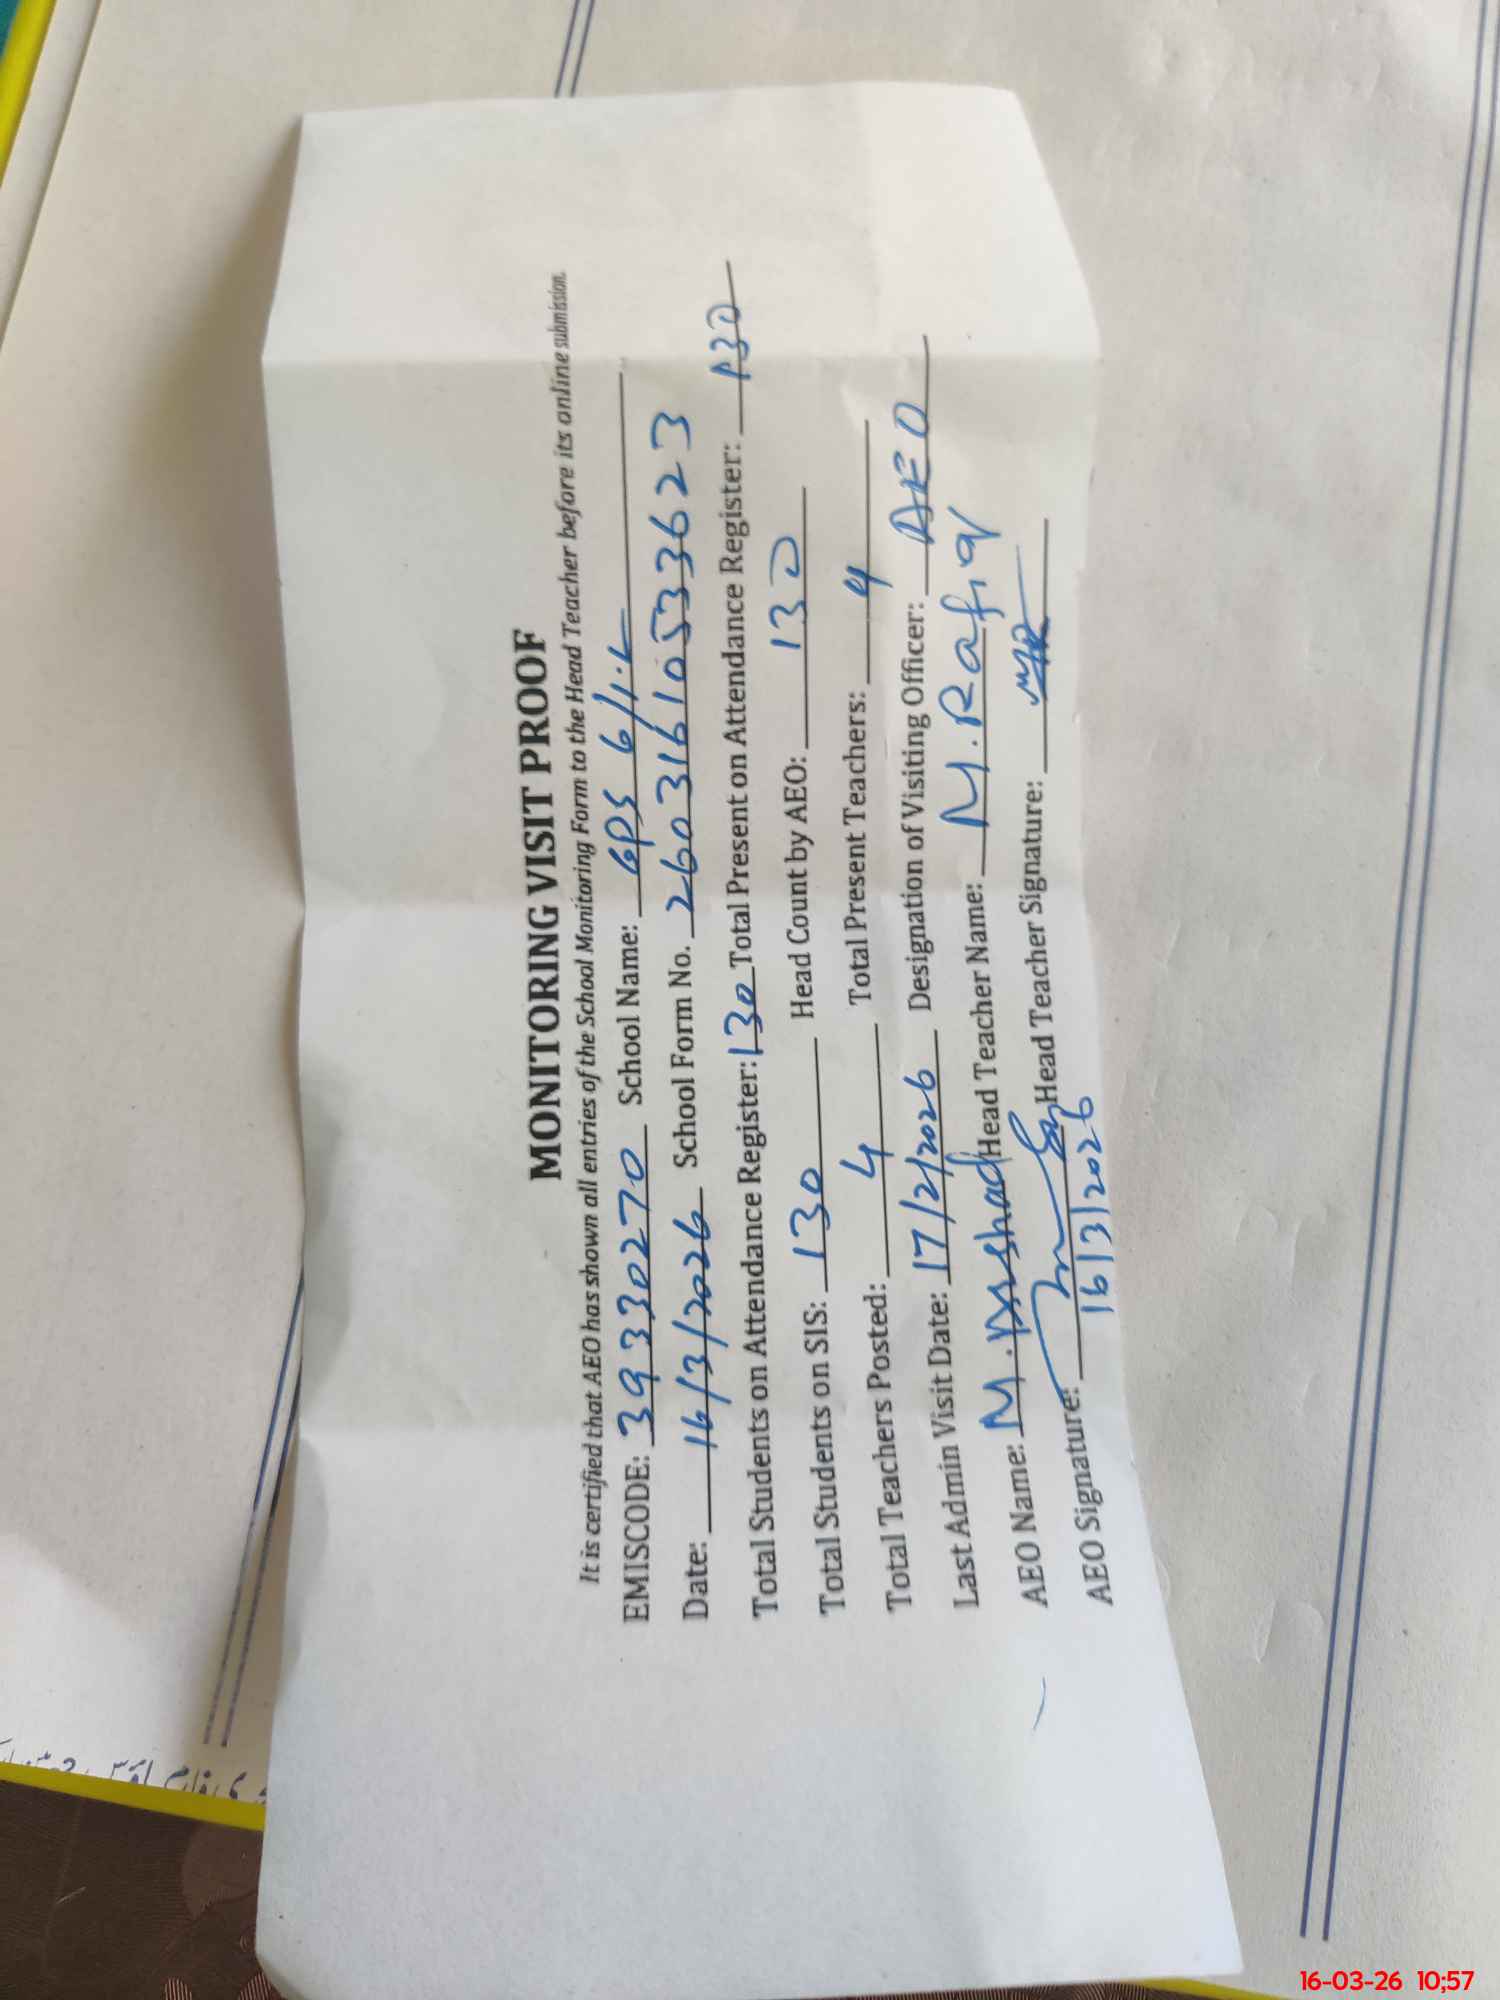 MONITORING VISIT PROOF
It is certified that AEO has shown all entries of the School Monitoring Form to the Head Teacher before its online submission.
EMISCODE: 39330270 School Name: GPS 6/1.L
Date: 16/3/2026 School Form No. 26031610533623
Total Students on Attendance Register: 130 Total Present on Attendance Register: 130
Total Students on SIS: 130 Head Count by AEO: 130
Total Teachers Posted: 4 Total Present Teachers: 4
Last Admin Visit Date: 17/2/2026 Designation of Visiting Officer: AEO
AEO Name: M. Arshad Head Teacher Name: M. Rafiq
AEO Signature: Head Teacher Signature:
16/3/2026
16-03-26 10;57